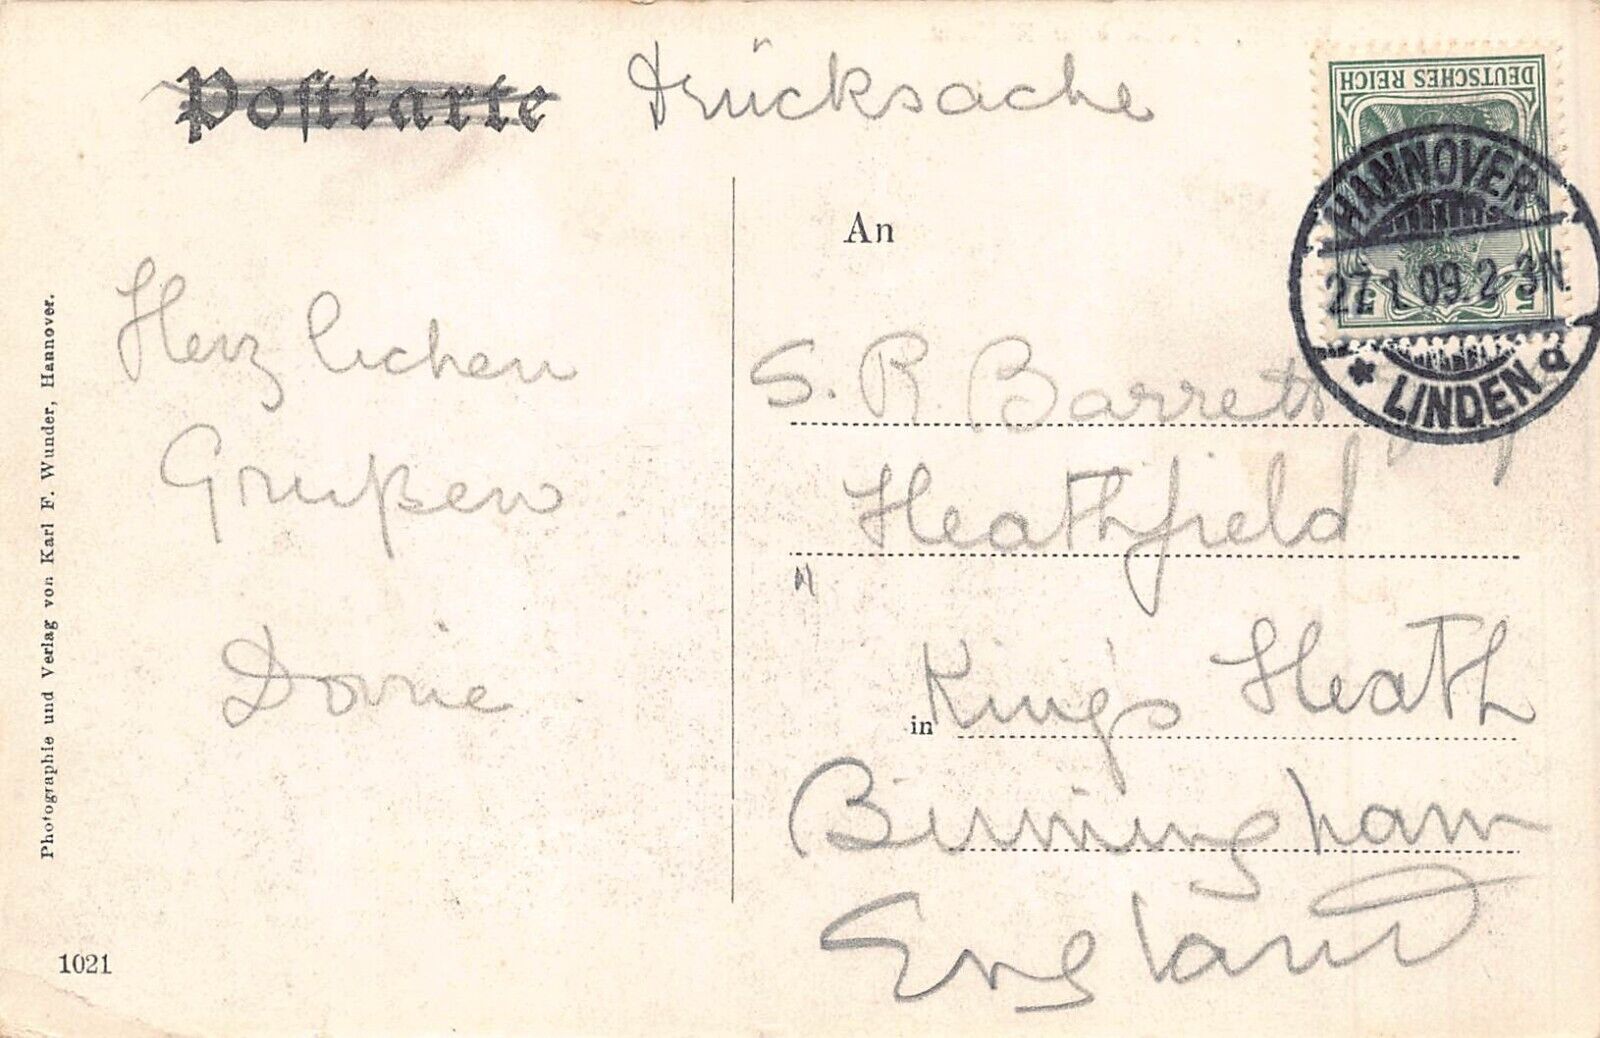 Postkarte Drücksache
DEUTSCHES REICH
5 5
HANNOVER
27.1.09.2-3N.
* LINDEN q
An
S. R. Barrett
Heathfield
in King's Heath
Birmingham
England
Herzlichen
Grußen.
Dorrie
Photographie und Verlag von Karl F. Wunder, Hannover.
1021